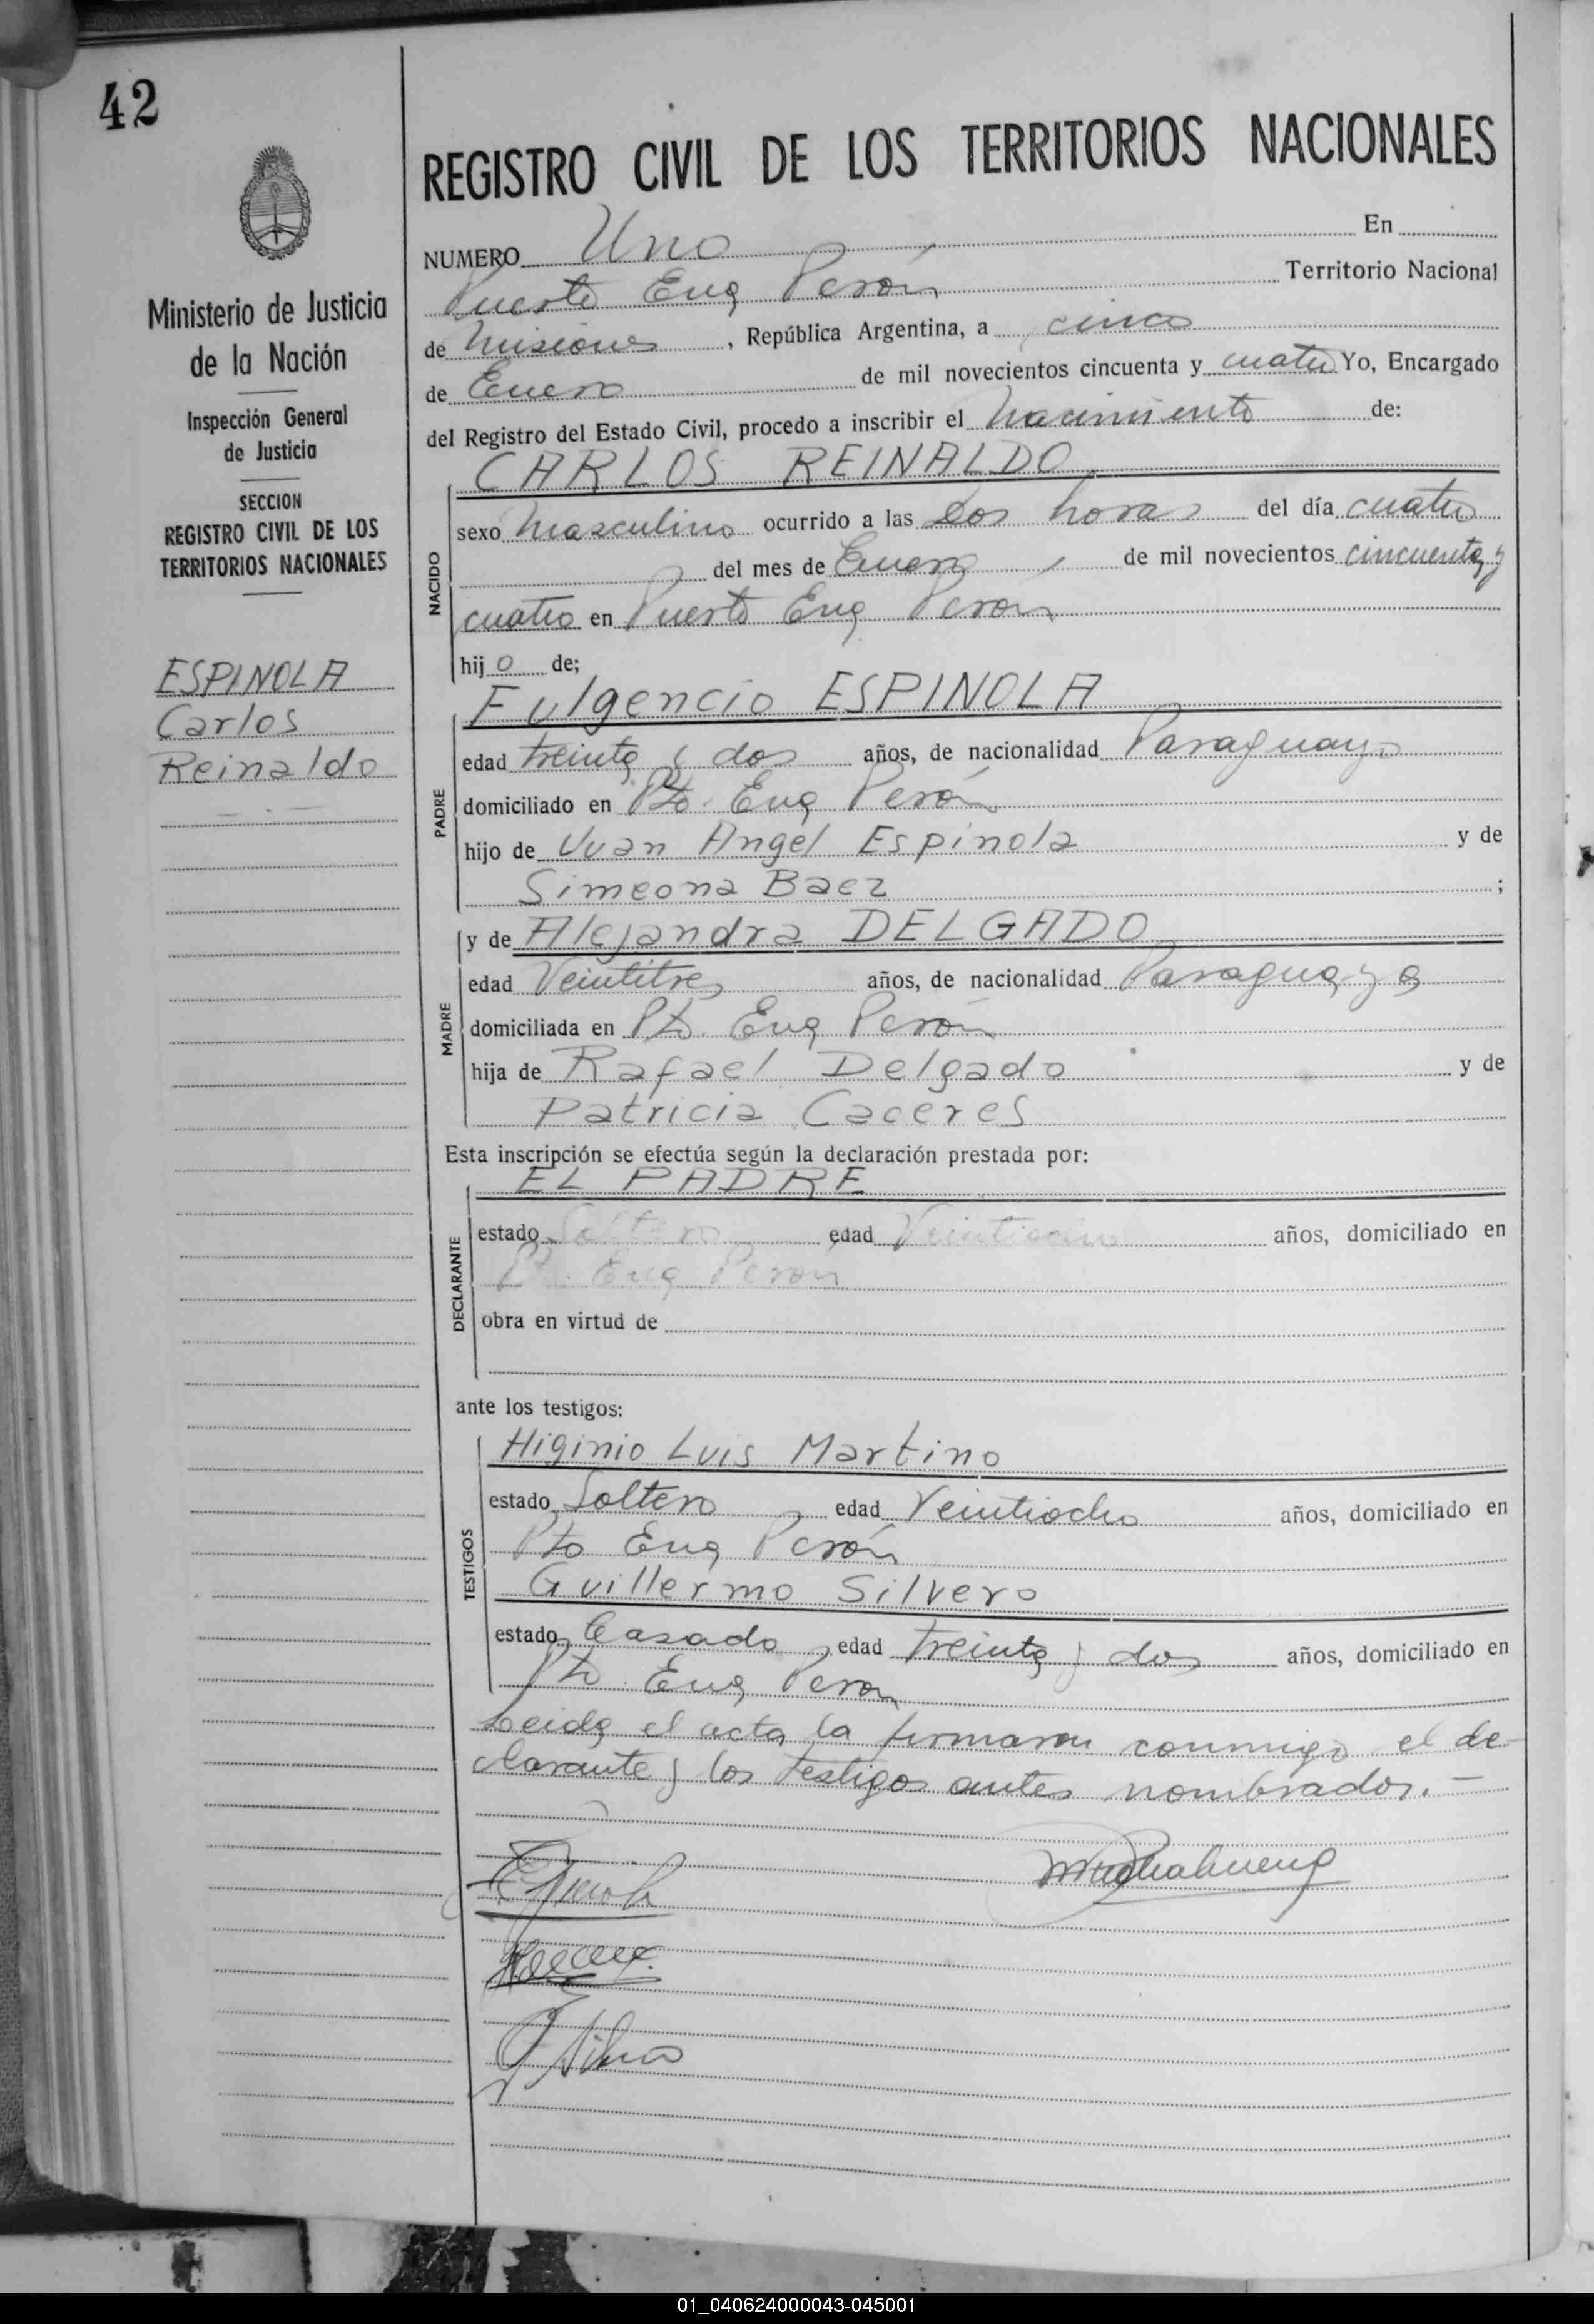 42
Ministerio de Justicia
de la Nación
Inspección General
de Justicia
SECCION
REGISTRO CIVIL DE LOS
TERRITORIOS NACIONALES
ESPINOLA
Carlos
Reinaldo
REGISTRO CIVIL DE LOS TERRITORIOS NACIONALES
NUMERO Uno En
Puerto Eva Perón Territorio Nacional
de Misiones, República Argentina, a cinco
de Enero de mil novecientos cincuenta y cuatro Yo, Encargado
del Registro del Estado Civil, procedo a inscribir el Nacimiento de:
CARLOS REINALDO
NACIDO
sexo Masculino ocurrido a las dos horas del día cuatro
del mes de Enero de mil novecientos cincuenta y
cuatro en Puerto Eva Perón
hijo de;
Fulgencio ESPINOLA
PADRE
edad treinta y dos años, de nacionalidad Paraguaya
domiciliado en Pto. Eva Perón
hijo de Juan Angel Espinola y de
Simeona Baez ;
y de Alejandra DELGADO
MADRE
edad Veintitres años, de nacionalidad Paraguaya
domiciliada en Pto. Eva Perón
hija de Rafael Delgado y de
Patricia Caceres
Esta inscripción se efectúa según la declaración prestada por:
EL PADRE
DECLARANTE
estado Soltero edad Veintiocho años, domiciliado en
Pto. Eva Perón
obra en virtud de
ante los testigos:
TESTIGOS
Higinio Luis Martino
estado Soltero edad Veintiocho años, domiciliado en
Pto Eva Perón
Guillermo Silvero
estado Casado edad treinta y dos años, domiciliado en
Pto. Eva Peron
Leida el acta la firmaron conmigo el de-
clarante y los testigos antes nombrados.-
01_040624000043-045001